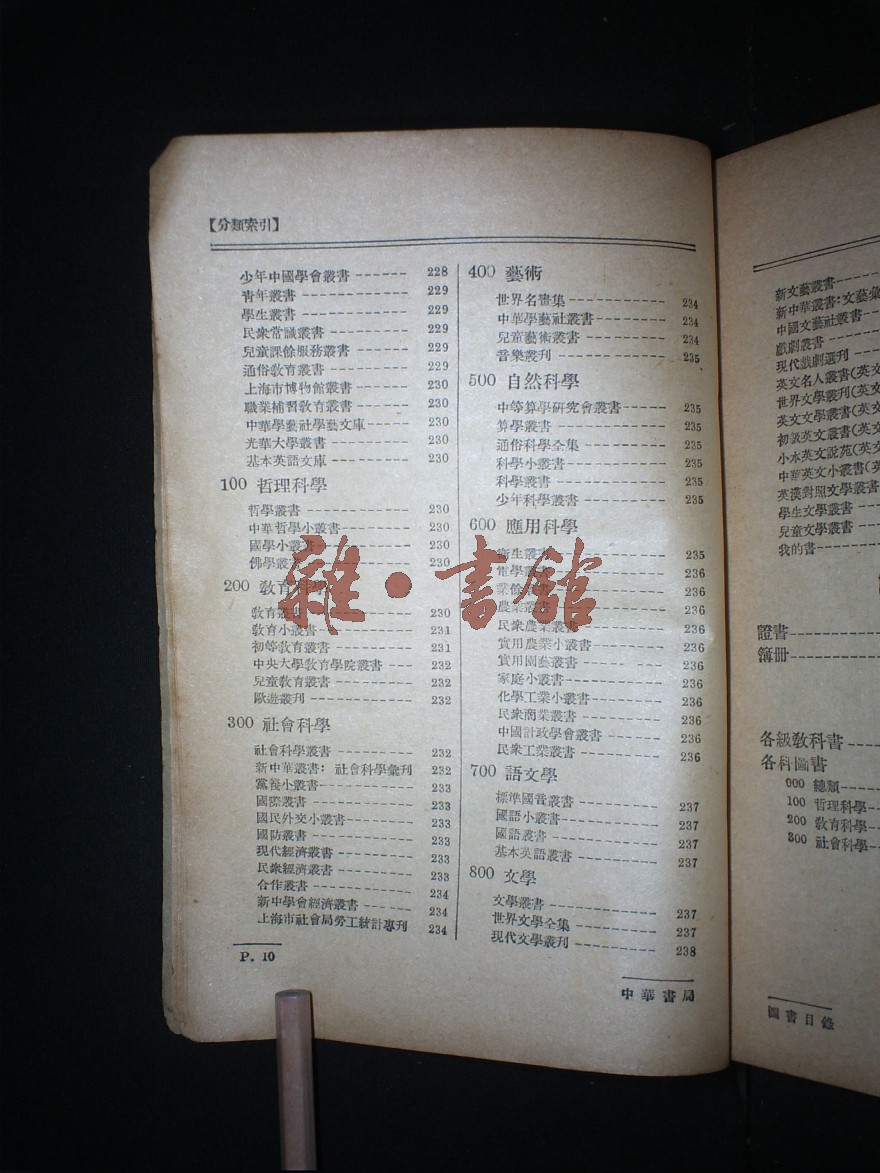 【分類索引】
少年中國學會叢書 ------ 228
青年叢書 ------------ 229
學生叢書 ------------ 229
民衆常識叢書 --------- 229
兒童課餘服務叢書 ------ 229
通俗敎育叢書 --------- 229
上海市博物館叢書 ------ 230
職業補習敎育叢書 ------ 230
中華學藝社學藝文庫 ----- 230
光華大學叢書 --------- 230
基本英語文庫 --------- 230
100 哲理科學
哲學叢書 ------------ 230
中華哲學小叢書 -------- 230
國學小叢書 ----------- 230
佛學叢書 ------------ 230
200 敎育科學
敎育叢書 ------------ 230
敎育小叢書 ----------- 231
初等敎育叢書 --------- 231
中央大學敎育學院叢書 ---- 232
兒童敎育叢書 --------- 232
歐遊叢刊 ------------ 232
300 社會科學
社會科學叢書 --------- 232
新中華叢書：社會科學彙刊 232
黨義小叢書 ----------- 233
國際叢書 ------------ 233
國民外交小叢書 -------- 233
國防叢書 ------------ 233
現代經濟叢書 --------- 233
民衆經濟叢書 --------- 233
合作叢書 ------------ 234
新中學會經濟叢書 ------ 234
上海市社會局勞工統計專刊 234
P. 10
400 藝術
世界名畫集 ----------- 234
中華學藝社叢書 -------- 234
兒童藝術叢書 --------- 234
音樂叢刊 ------------ 235
500 自然科學
中等算學硏究會叢書 ----- 235
算學叢書 ------------ 235
通俗科學全集 --------- 235
科學小叢書 ----------- 235
科學叢書 ------------ 235
少年科學叢書 --------- 235
600 應用科學
衞生叢書 ------------ 235
電學叢書 ------------ 236
業餘叢書 ------------ 236
農業叢書 ------------ 236
民衆農業叢書 --------- 236
實用農業小叢書 -------- 236
實用園藝叢書 --------- 236
家庭小叢書 ----------- 236
化學工業小叢書 -------- 236
民衆商業叢書 --------- 236
中國計政學會叢書 ------ 236
民衆工業叢書 --------- 236
700 語文學
標準國音叢書 --------- 237
國語小叢書 ----------- 237
國語叢書 ------------ 237
基本英語叢書 --------- 237
800 文學
文學叢書 ------------ 237
世界文學全集 --------- 237
現代文學叢刊 --------- 238
中華書局
雜·書舘
新文藝叢書
新中華叢書：文藝彙
中國文藝社叢書
戲劇叢書
現代戲劇選刊
英文名人叢書(英文
世界文學叢刊(英文
英文文學叢書(英文
初級英文叢書(英文
小本英文說苑(英文
中華英文小叢書(英
英漢對照文學叢書
學生文學叢書
兒童文學叢書
我的書
證書
簿冊
各級敎科書
各科圖書
000 總類
100 哲理科學
200 敎育科學
300 社會科學
圖書目錄